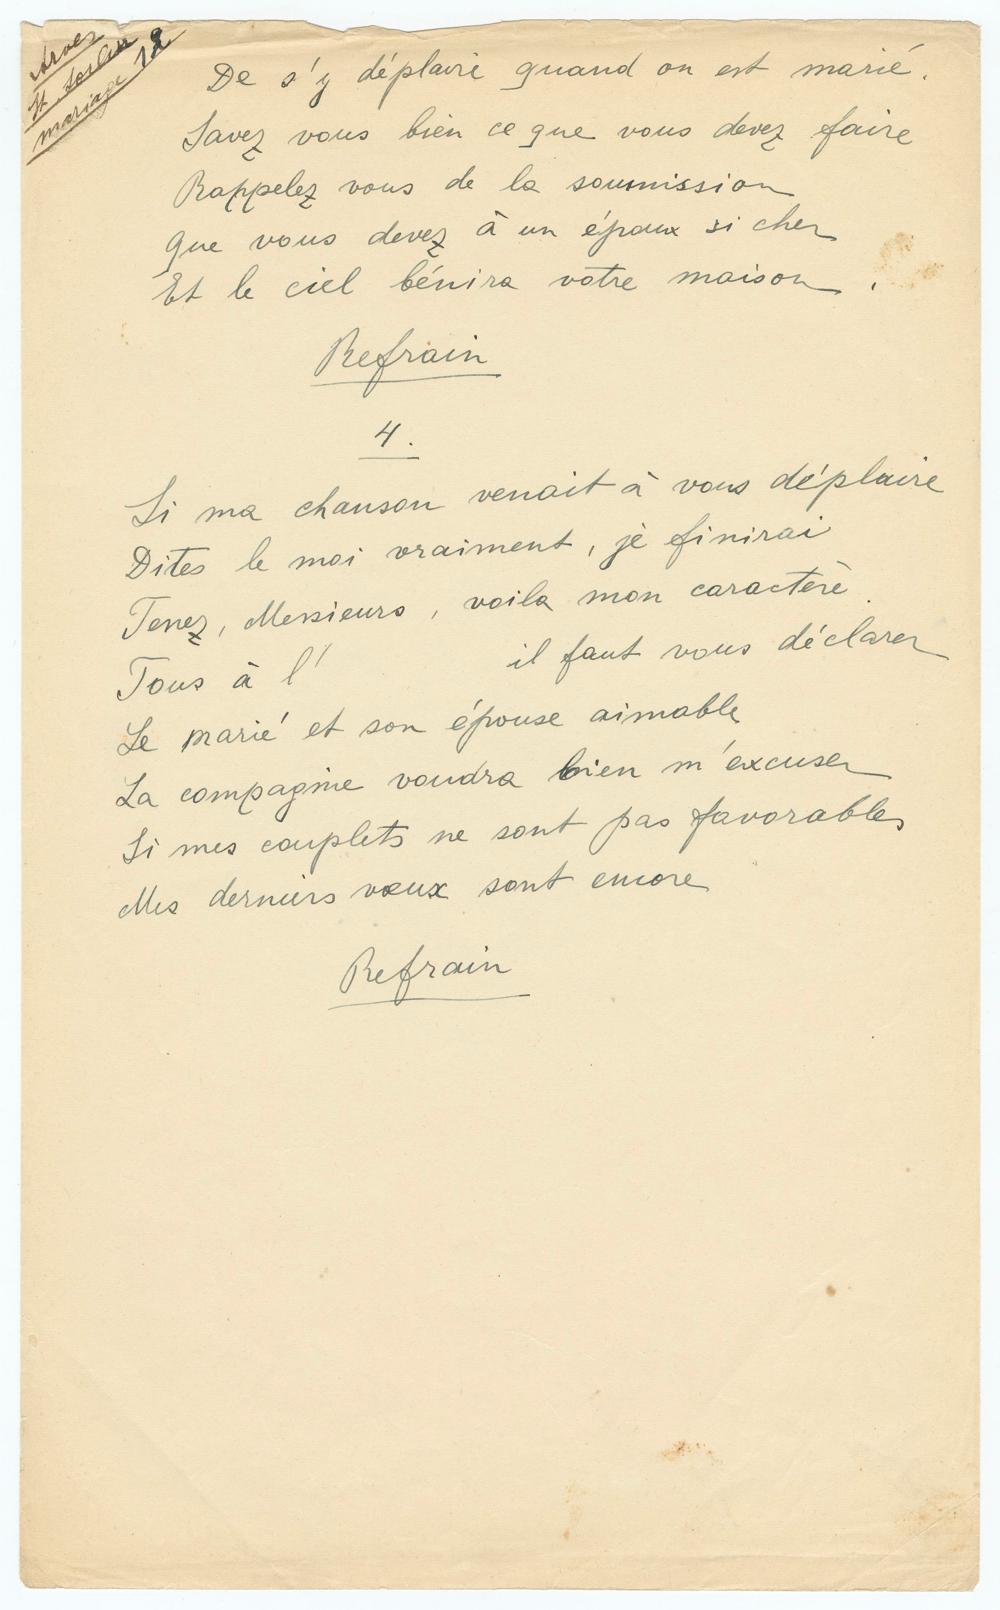 Arves
St Sorlin
mariage 12
De s'y déplaire quand on est marié.
Savez vous bien ce que vous devez faire
Rappelez vous de la soumission
Que vous devez à un époux si cher
Et le ciel bénira votre maison.
Refrain
4.
Si ma chanson venait à vous déplaire
Dites le moi vraiment, je finirai
Tenez, Messieurs, voila mon caractère.
Tous à l' il faut vous déclarer
Le marié et son épouse aimable
La compagnie voudra bien m'excuser
Si mes couplets ne sont pas favorables
Mes derniers vœux sont encore
Refrain